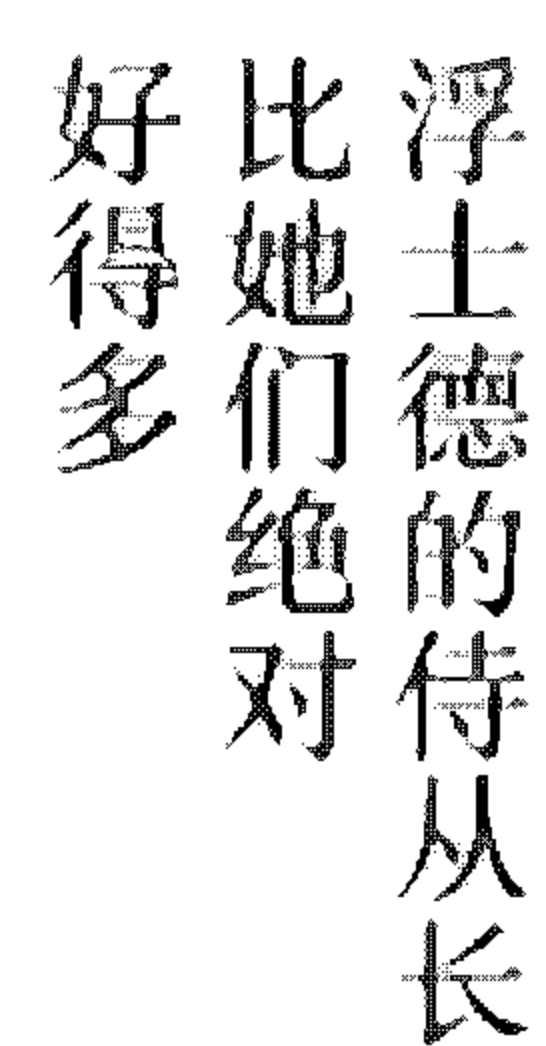 浮士德的侍从长
比她们绝对
好得多